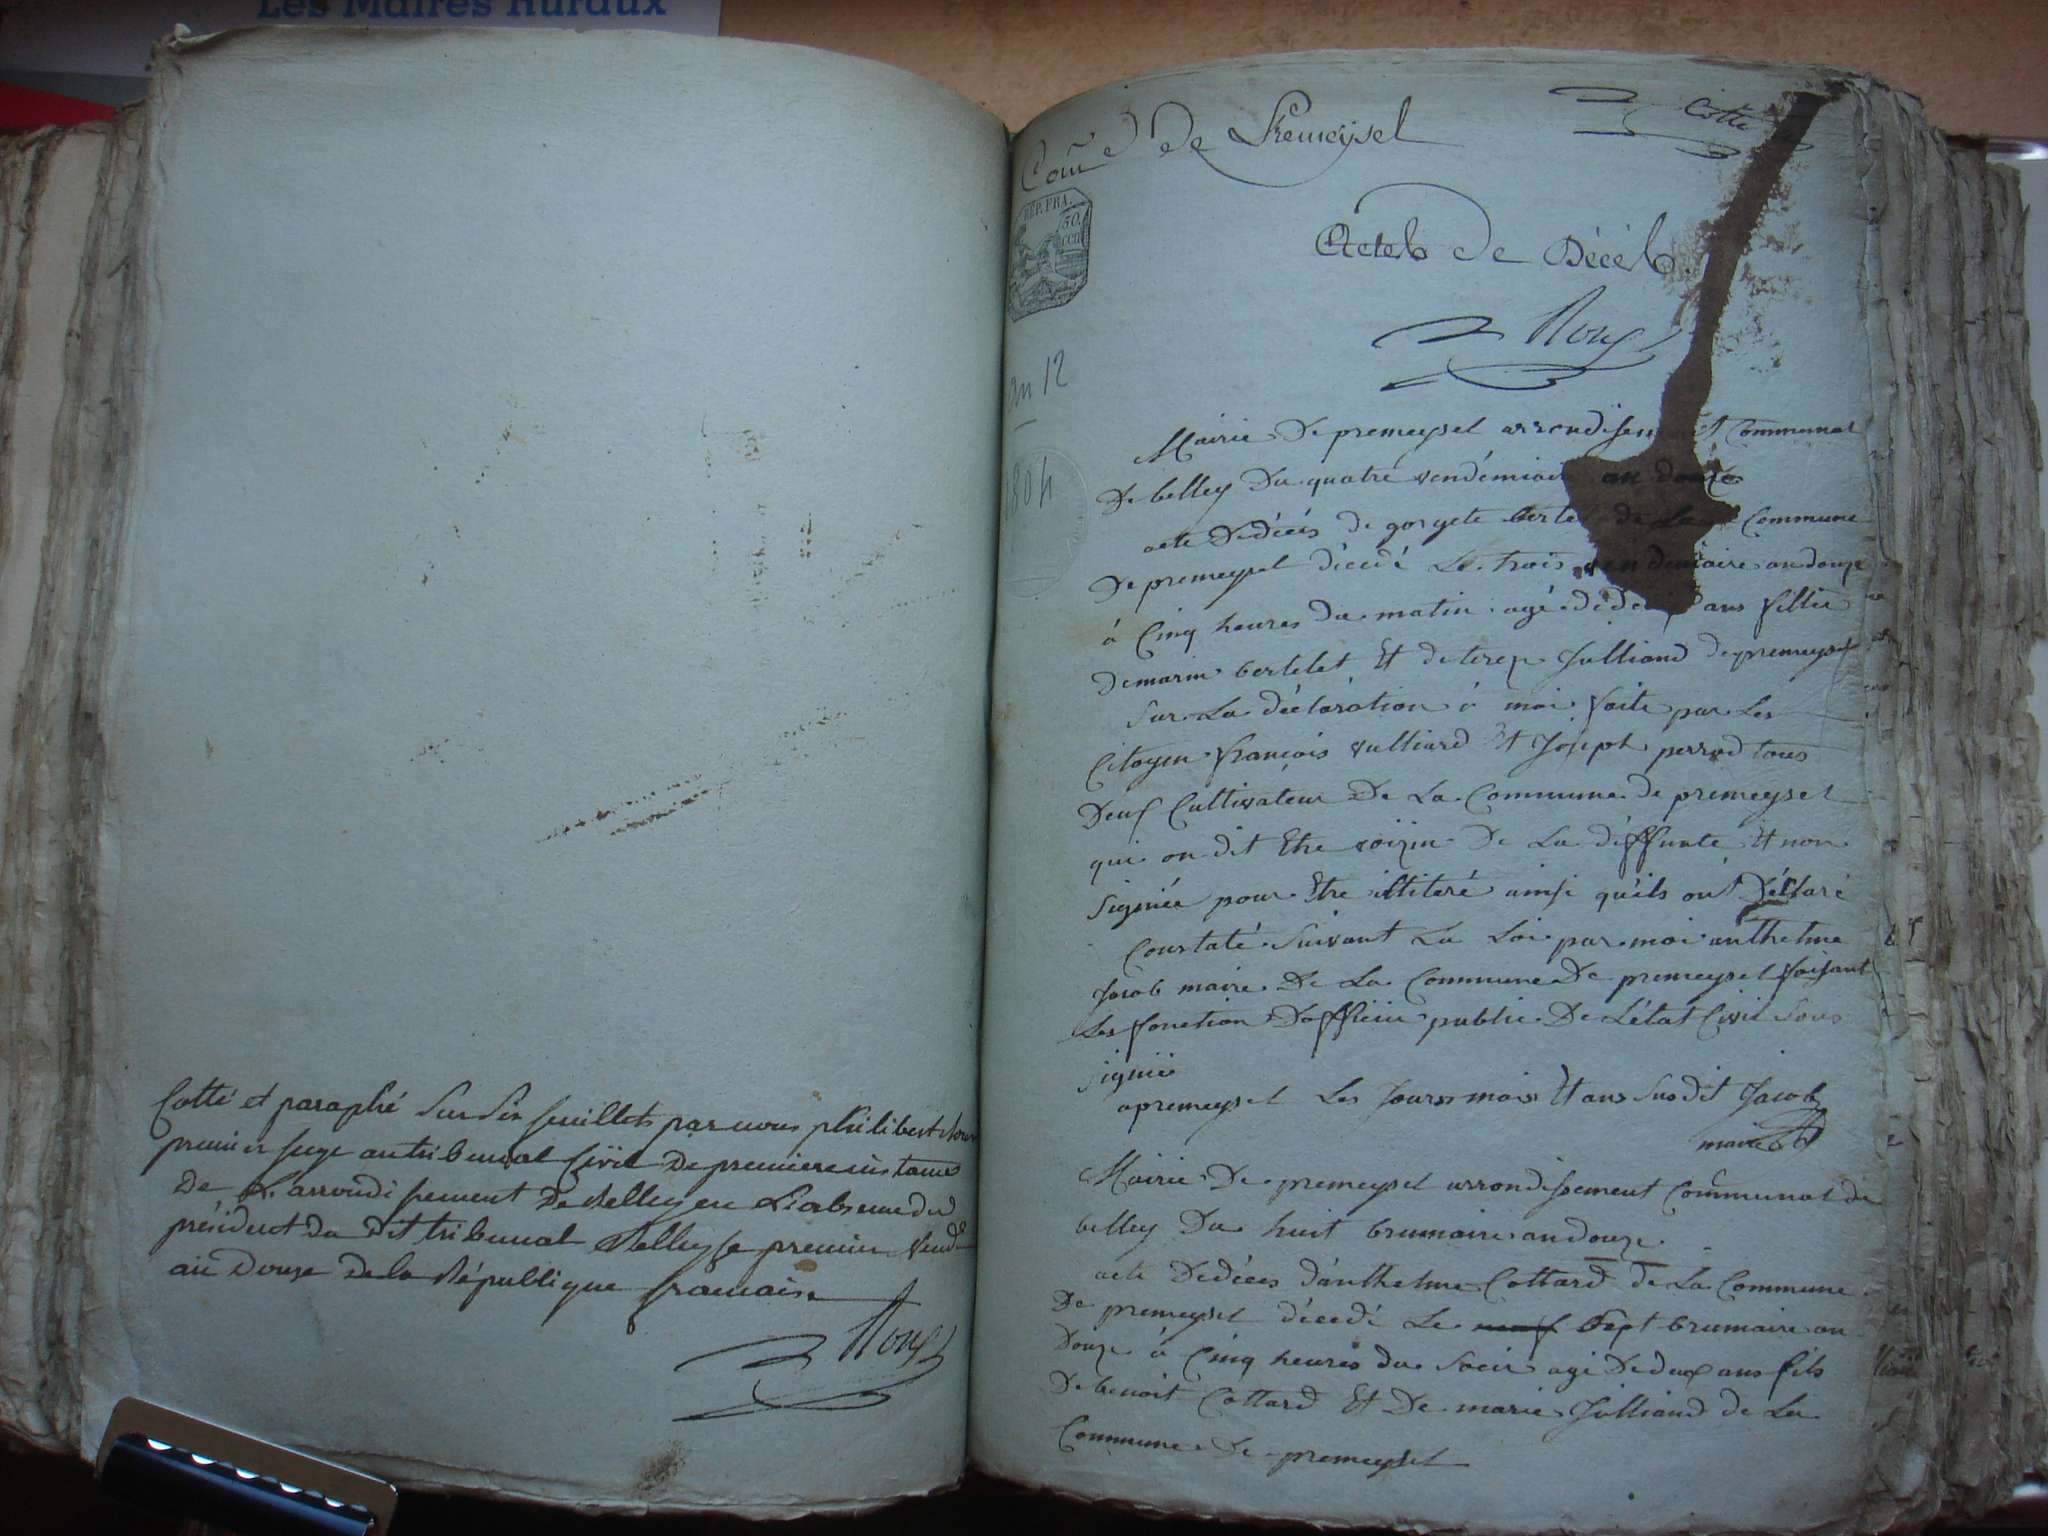 Les Maires Ruraux
Cotté et paraphé sur six feuillets par nous philibert Roux
premier juge au tribunal Civil De premiere instance
De L'arrondissement De Belley en L'absence du
président du dit tribunal Belley le premier vend.re
an Douze De la République francaise
Roux
Come de Premeÿsel
Cotte
REP. FRA.
50.
cen
Actes de Décès.
Roux
an 12
1804
Mairie De premeysel arrondissement Communal
De belley Du quatre vendémiaire an douze
acte Dedécés de gorgete bertelet de La Commune
De premeysel décedé Le trois vendemiaire an douze
à Cinq heures du matin agé de ans fillie
De marin bertelet Et de Julliand de premeysel
Sur La déclaration à moi faite par Les
Citoyen françois vulliard Et Joseph perrod tous
Deux Cultivateur De La Commune de premeysel
qui on dit Etre voizin De La déffunte Et non
Signiée pour Etre illiteré ainsi qu'ils ont Déclaré
Constaté Suivant La Loi par moi anthelme
Jacob maire De La Commune De premeysel faisant
Les fonction Dofficie public De L'état Civil Sous
signiée
apremeysel Les Jours mois Et ans Susdit Jacob
maire
Mairie De premeysel arrondissement Communal de
belley Du huit brumaire an douze.
acte Dedéces d'anthelme Cottard de La Commune
De premeysel décedé Le neuf Sept brumaire an
Douze à Cinq heures du Soeir agé De deux ans fils
De benoit Cottard Et De marie Julliand de La
Commune De premeysel